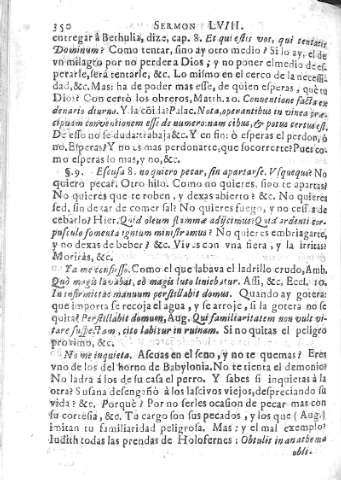 350 SERMON LVIII.
entregar à Bethulia, dize, cap. 8. Et qui estis vos, qui tentatis
Dominum? Como tentar, sino ay otro medio? Si lo ay, el de
vn milagro por no perder a Dios; y no poner el medio de es-
perarle, serà tentarle, &c. Lo mismo en el cerco de la necessi-
dad, &c. Mas: ha de poder mas esse, de quien esperas, que tu
Dios? Con certò los obreros, Matth. 10. Conventione facta ex
denario diurno. Y la Palac. Nota, operantibus tu vinea præ-
conventionem esse de numero: nam cibus, & potus certus est.
De esso no se dudatrabaja &c. Y en fin: ò esperas el perdon, ò
no. Esperas? Y no es mas perdonarte, que socorrerte? Pues co-
mo esperas lo mas, y no, &c.
§. 9. Escusa 8. no quiero pecar, sin apartarse. Vsquequò? No
quiero pecar. Otro hilo. Como no quieres, sino te apartas?
No quieres que te roben, y dexas abierto? &c. No quieres
sed, sin dexar de comer sal? No quieres fuego, y no cessa de
cebarlo? Hier. Quid oleum flammæ adijcimus? Quid ardenti cor-
pusculo fomenta ignium ministramus? No quieres embriagarte,
y no dexas de beber? &c. Vives con vna fiera, y la irritas?
Moriràs, &c.
Ya me confiesso. Como el que labava el ladrillo crudo, Amb.
Quò magis lavabat, eò magis luto linebatur. Assi, &c, Eccl. 10.
In infirmitate manuum perstillabit domus. Quando ay gotera:
que importa se recoja el agua, y se arroje, si la gotera no se
quita? Perstillabit domum, Aug. Qui familiaritatem non vult vi-
tare suspectam, citò labitur in ruinam. Si no quitas el peligro
proximo, &c.
No me inquieta. Ascuas en el seno, y no te quemas? Eres
vno de los del horno de Babylonia. No te tienta el demonio?
No ladra à los de su casa el perro. Y sabes si inquietas à la
otra? Susana desengañò à los lascivos viejos, despreciando su
vida? &c. Porquè? Por no serles ocasion de pecar mas con
su cortesia, &c. Tu cargo son sus pecados, y los que (Aug.)
imitan tu familiaridad peligrosa. Mas: y el mal exemplo?
Iudith todas las prendas de Holofernes: Obtulit in anathema
obli-